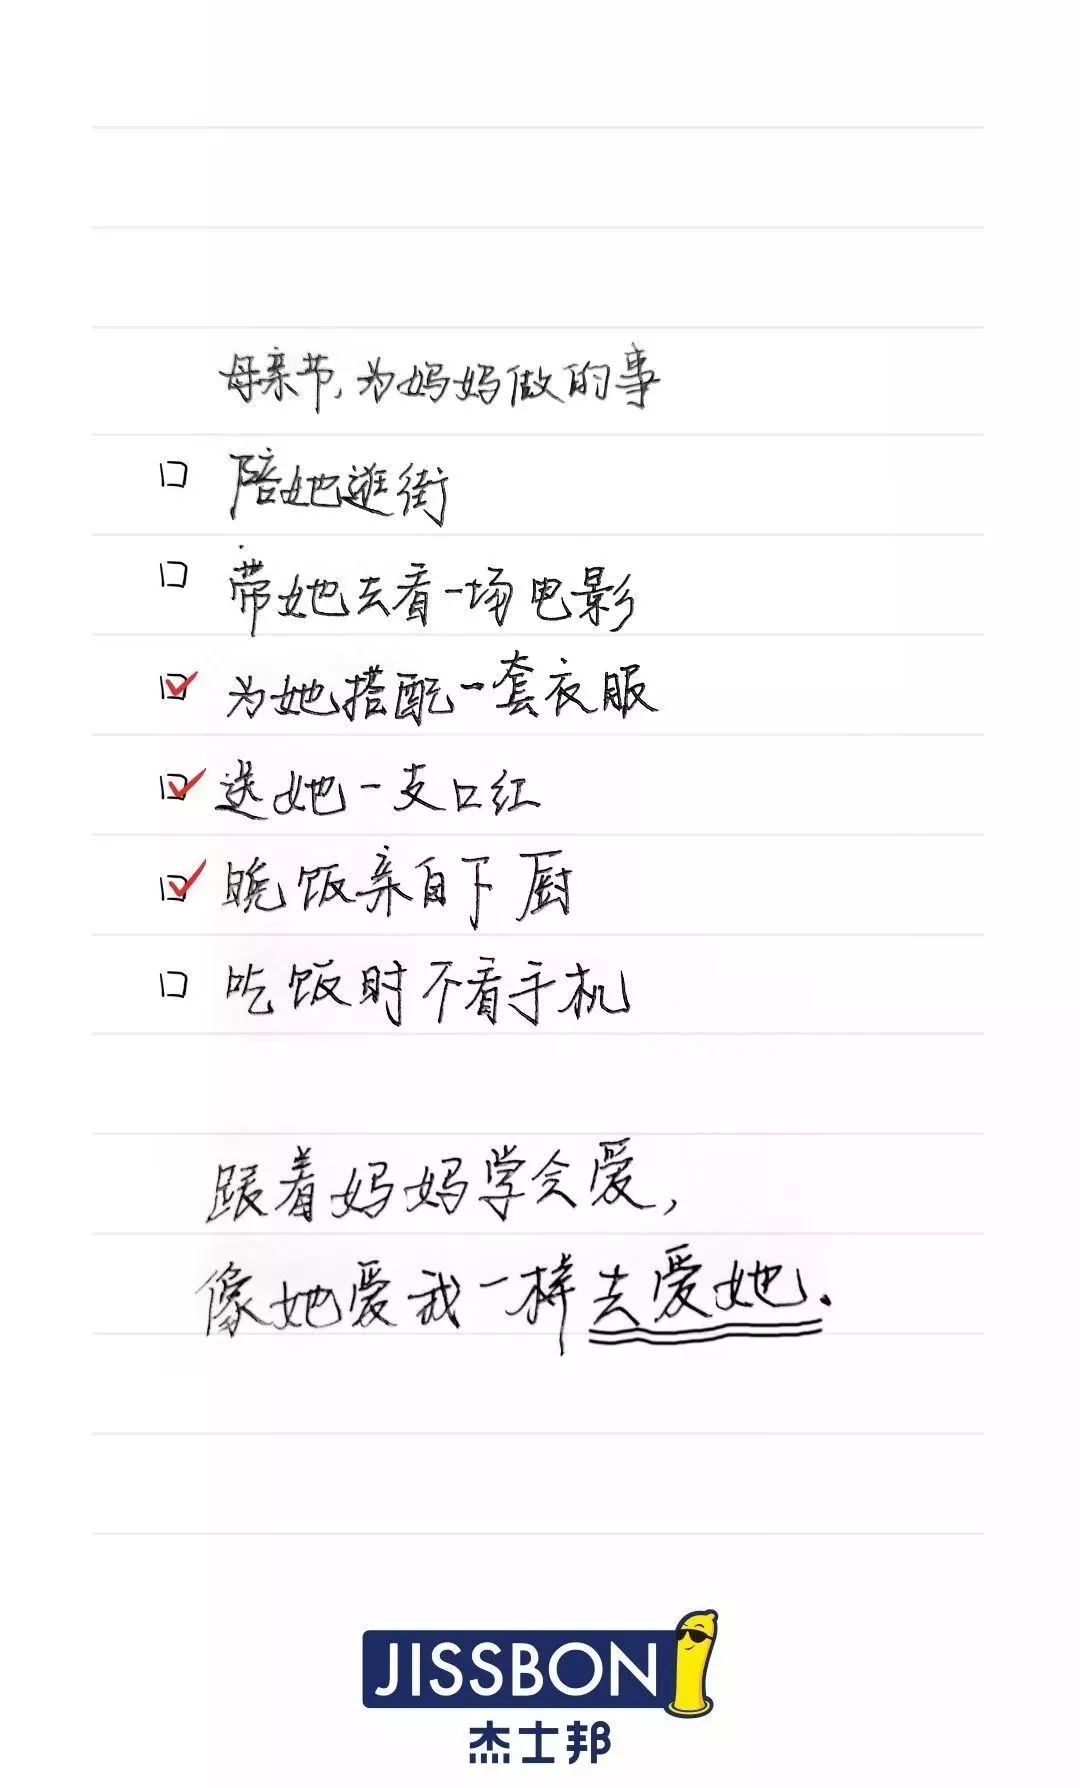 母亲节,为妈妈做的事
陪她逛街
带她去看一场电影
为她搭配一套衣服
送她一支口红
晚饭亲自下厨
吃饭时不看手机
跟着妈妈学会爱,
像她爱我一样去爱她.
JISSBON
杰士邦